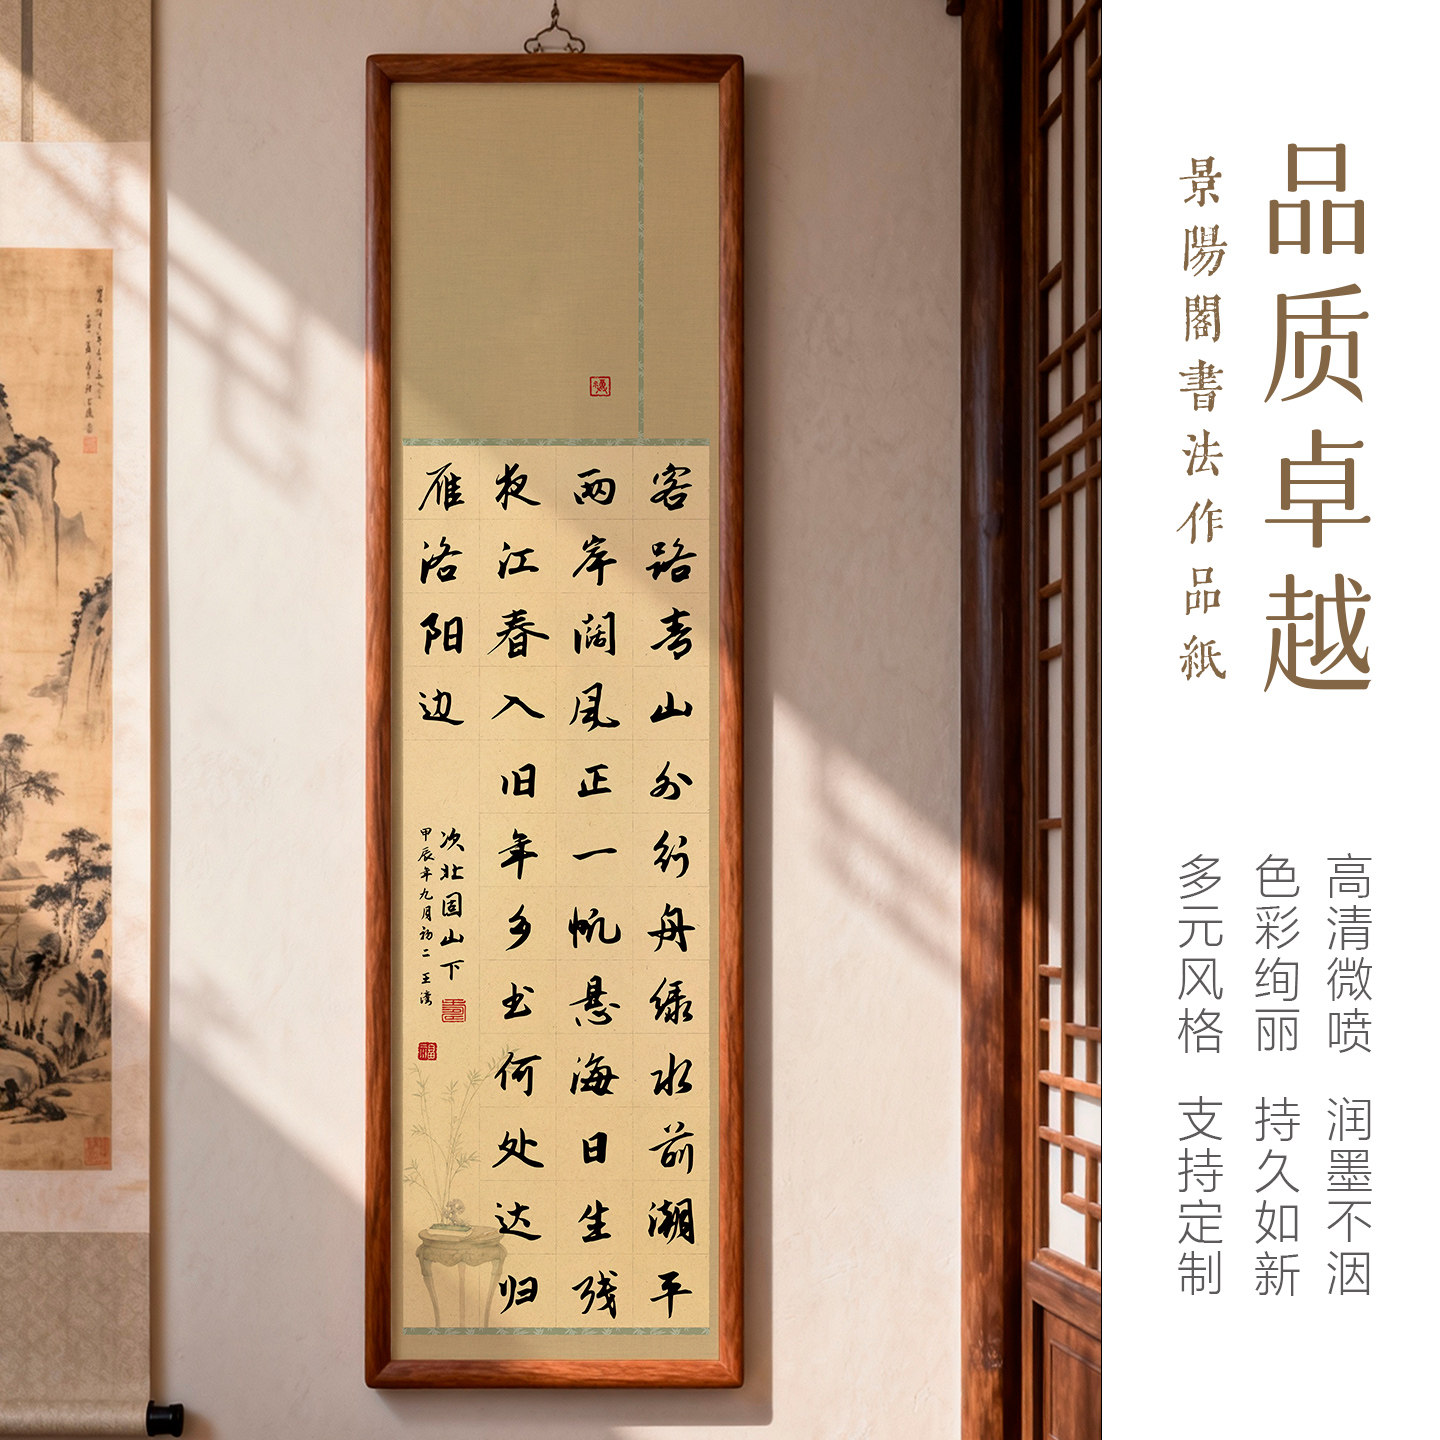 品质卓越
景陽閣書法作品紙
高清微喷 润墨不洇
色彩绚丽 持久如新
多元风格 支持定制
客路青山外行舟绿水前潮平
两岸阔风正一帆悬海日生残
夜江春入旧年乡书何处达归
雁洛阳边
次北固山下
甲辰年九月初二 王湾